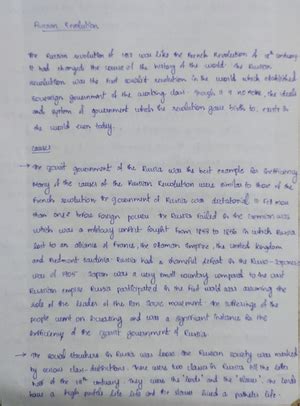 Russian Revolution
The Russian revolution of 1917 was like the French Revolution of 18th century
It had changed the course of the history of the world. The Russian
revolution was the first socialist revolution in the world which established
sovereign government of the working class. Though it is no more, the ideals
and system of government which the revolution gave birth to, exists in
the world even today.
CAUSES
→ The Czarist government of the Russia was the best example for inefficiency
Many of the causes of the Russian Revolution were similar to those of the
French revolution. The government of Russia was dictatorial. It fell
more than once before foreign powers. The Russia failed in the Crimean war
which was a military conflict fought from 1853 to 1856 in which Russia
lost to an alliance of France, the Ottoman Empire, the United Kingdom
and Piedmont Sardinia. Russia had a shameful defeat in the Russo-Japanese
war of 1905. Japan was a very small country compared to the vast
Russian empire. Russia participated in the First world war assuming the
role of the leader of the Pan Slavic movement. The sufferings of the
people went on increasing and was a significant instance for the
inefficiency of the Czarist government of Russia.
→ The social structure in Russia was loose. The Russian society was marked
by serious class distinctions. There were two classes in Russia till the latter
half of the 19th century. They were the "lords" and the "slaves". The lords
have a high profile life and the slaves lived a pathetic life.